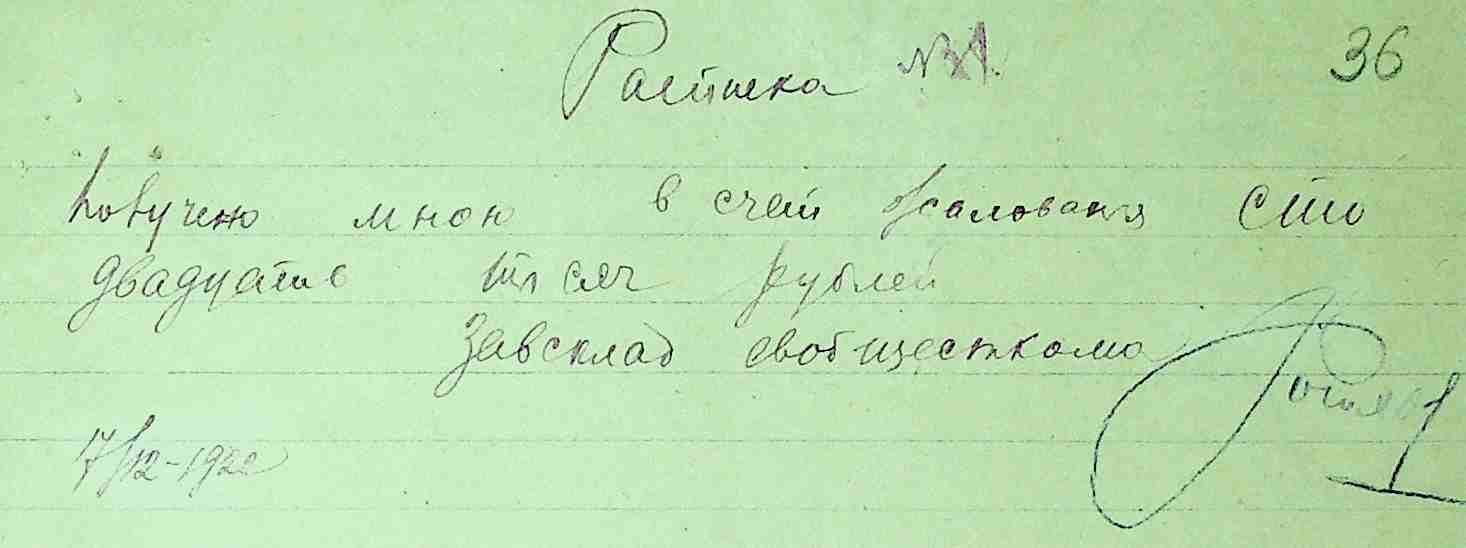 Расписка №1. 36
Получено мною в счет жалования сто
двадцать тысяч рублей
Завсклад
17/12-1922